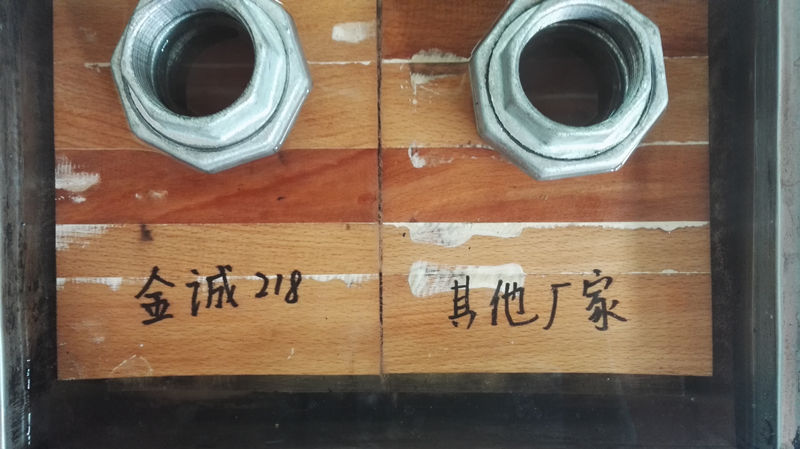 金诚218
其他厂家